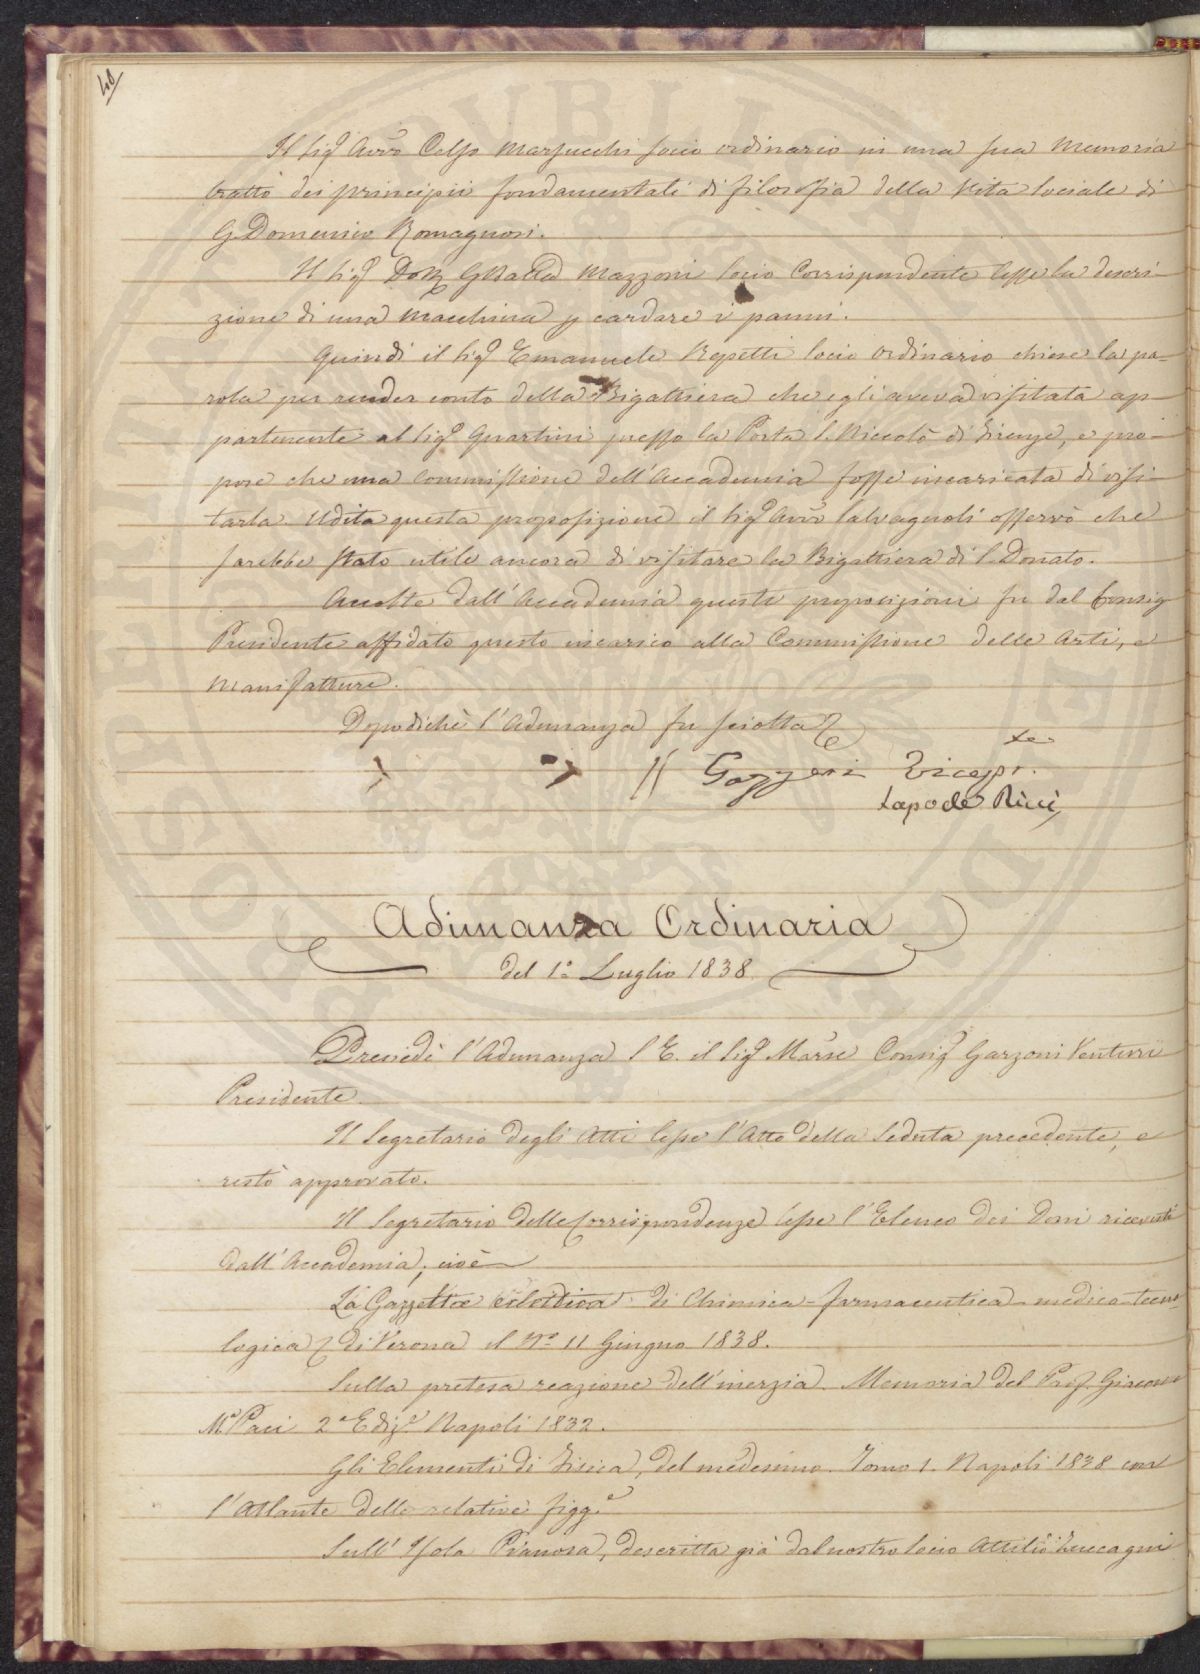 40
Il Sigr Avvo Celso Marzucchi socio ordinario in una sua Memoria
trattò dei principii fondamentali di filosofia della vita sociale di
G. Domenico Romagnosi.
Il Sigr Dott. G Batta Mazzoni socio Corrispondente lesse la descri-
zione di una Macchina p cardare i panni.
Quindi il Sigr Emanuele Repetti socio ordinario chiese la pa-
rola per render conto della Bigattiera che egli aveva visitata ap-
partenente al Sigr Quartini presso la Porta S. Niccolò di Firenze, e pro-
pose che una Commissione dell'Accademia fosse incaricata di visi-
tarla. Udita questa proposizione il Sigr Avvo Salvagnoli osservò che
sarebbe stato utile ancora di visitare la Bigattiera di S. Donato.
Accolte dall'Accademia queste proposizioni fu dal Consigr
Presidente affidato questo incarico alla Commissione delle Arti, e
Manifatture.
Dopodichè l'Adunanza fu sciolta
Gazzeri Vicepr.te
Lapo de Ricci
Adunanza Ordinaria
del 1° Luglio 1838
Presiedè l'Adunanza S. E. il Sigr Marse Consigr Garzoni Venturi
Presidente
Il Segretario degli Atti lesse l'Atto della Seduta precedente, e
restò approvato.
Il Segretario delle Corrispondenze lesse l'Elenco dei Doni ricevuti
dall'Accademia; cioè
La Gazzetta eclettica di Chimica-farmaceutica-medico-tecno
logica di Verona il No 11 Giugno 1838.
Sulla pretesa reazione dell'inerzia. Memoria del Prof. Giacomo
Ma Paci 2a Edize Napoli 1832.
Gli Elementi di Fisica, del medesimo. Tomo 1. Napoli 1838 con
l'Atlante delle relative figge
Sull'Isola Pianosa, descritta già dal nostro socio Attilio Zuccagni